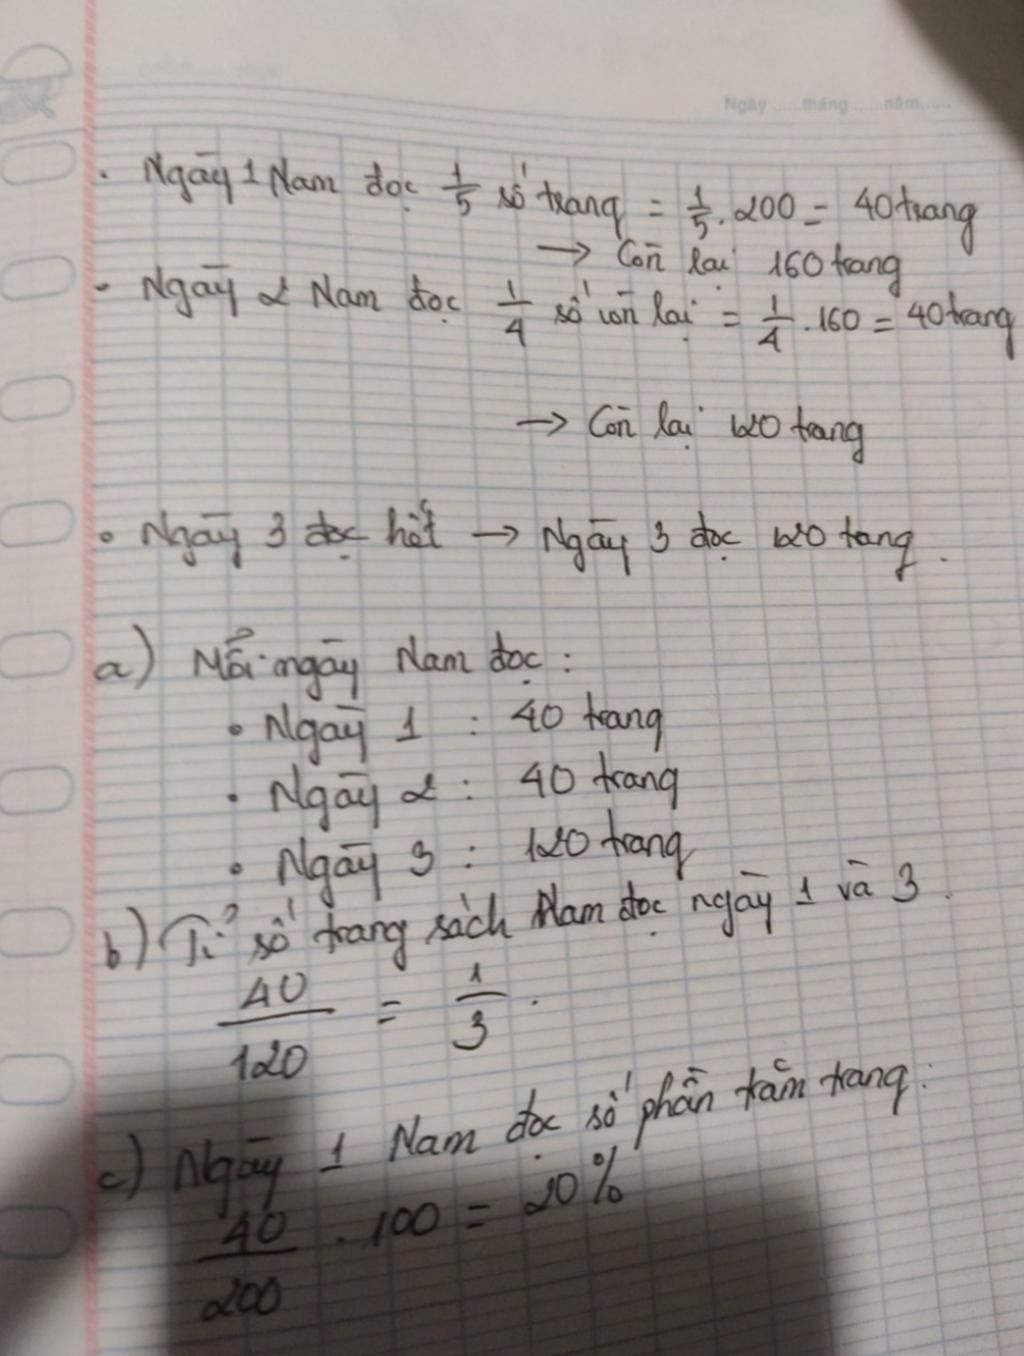 Ngày.....tháng.....năm.....
. Ngày 1 Nam đọc 1/5 số trang = 1/5 . 200 = 40 trang
→ Còn lại 160 trang
- Ngày 2 Nam đọc 1/4 số còn lại = 1/4 . 160 = 40 trang
→ Còn lại 120 trang
• Ngày 3 đọc hết → Ngày 3 đọc 120 tang.
a) Mỗi ngày Nam đọc :
• Ngày 1 : 40 trang
• Ngày 2 : 40 trang
• Ngày 3 : 120 trang
b) Tỉ số trang sách Nam đọc ngày 1 và 3.
40/120 = 1/3 .
c) Ngày 1 Nam đọc số phần trăm trang:
40/200 . 100 = 20%